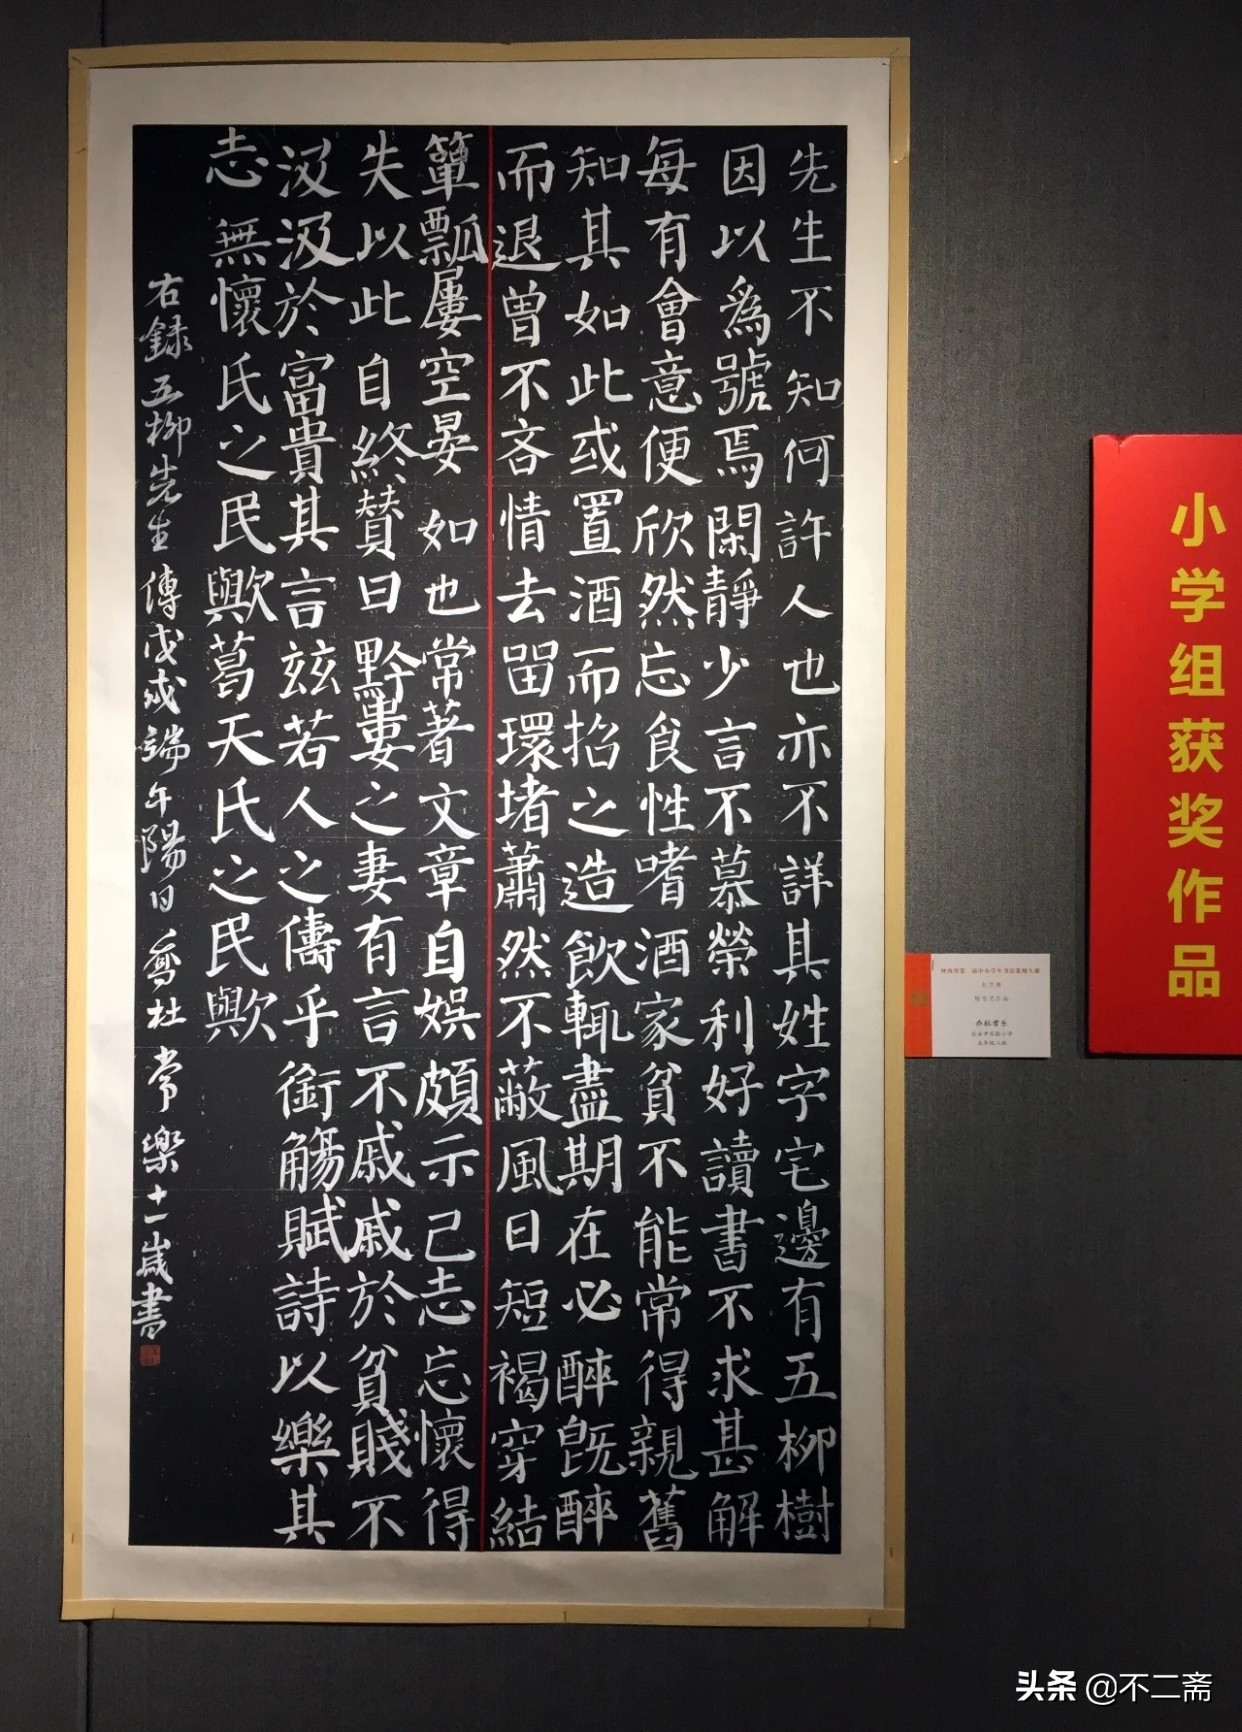 先生不知何許人也亦不詳其姓字宅邊有五柳樹
因以爲號焉閑靜少言不慕榮利好讀書不求甚解
每有會意便欣然忘食性嗜酒家貧不能常得親舊
知其如此或置酒而招之造飲輒盡期在必醉既醉
而退曾不吝情去留環堵蕭然不蔽風日短褐穿結
簞瓢屢空晏如也常著文章自娛頗示己志忘懷得
失以此自終贊曰黔婁之妻有言不戚戚於貧賤不
汲汲於富貴其言兹若人之儔乎銜觴賦詩以樂其
志無懷氏之民歟葛天氏之民歟
右録五柳先生傳戊戌端午陽日喬杜常樂十一歲書
小学组获奖作品
乔杜常乐
头条 @不二斋